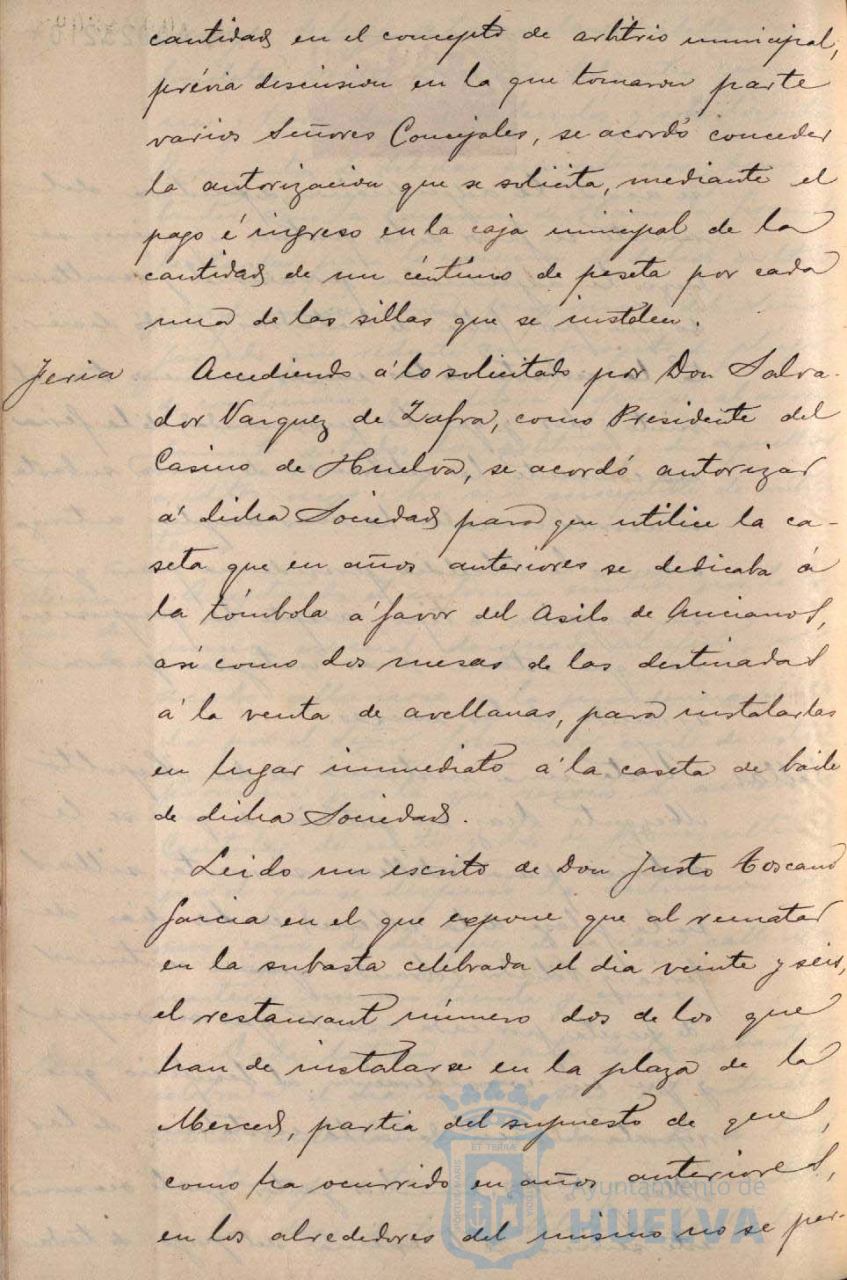 cantidad en el concepto de arbitrio municipal,
prévia discusion en la que tomaron parte
varios Señores Concejales, se acordó conceder
la autorizacion que se solicita, mediante el
pago é ingreso en la caja municipal de la
cantidad de un céntimo de peseta por cada
una de las sillas que se instalen.
Feria
Accediendo á lo solicitado por Don Salva-
dor Vazquez de Zafra, como Presidente del
Casino de Huelva, se acordó autorizar
á dicha Sociedad para que utilice la ca-
seta que en años anteriores se dedicaba á
la tómbola á favor del Asilo de Ancianos,
asi como dos mesas de las destinadas
á la venta de avellanas, para instalarlas
en lugar inmediato á la caseta de baile
de dicha Sociedad.
Leido un escrito de Don Justo Toscano
Garcia en el que expone que al rematar
en la subasta celebrada el dia veinte y seis,
el restaurant número dos de los que
han de instalarse en la plaza de la
Merced, partia del supuesto de que,
como ha ocurrido en años anteriores,
en los alrededores del mismo no se per-
Ayuntamiento de
HUELVA